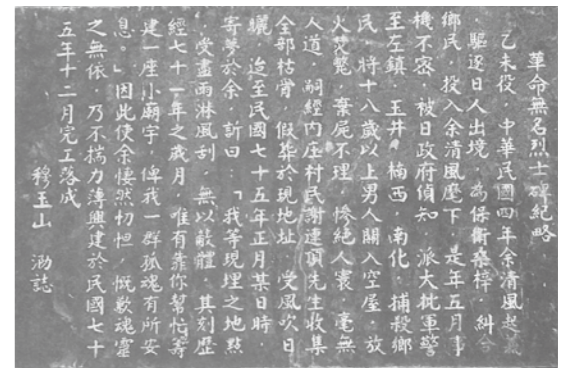 革命無名烈士碑紀略
乙未役，中華民國四年余清風起義
，驅逐日人出境，為保衛桑梓，糾合
鄉民，投入余清風麾下，是年五月事
機不密，被日政府偵知，派大批軍警
至左鎮，玉井，楠西，南化，捕殺鄉
民，將十八歲以上男人關入空屋，放
火焚斃，棄屍不理，慘絕人寰，毫無
人道，嗣經内庄村民謝連頂先生收集
全部枯骨，假葬於現地址，受風吹日
曬，迨至民國七十五年正月某日時，
寄夢於余，訴曰：「我等現埋之地點
受盡雨淋風刮，無以蔽體，其刻歷
經七十一年之歲月，唯有靠你幫忙籌
建一座小廟宇，俾我一群孤魂有所安
息。」因此使余悽然切怛，慨歎魂靈
之無依，乃不揣力薄興建於民國七十
五年十二月完工落成
穆玉山 泐誌